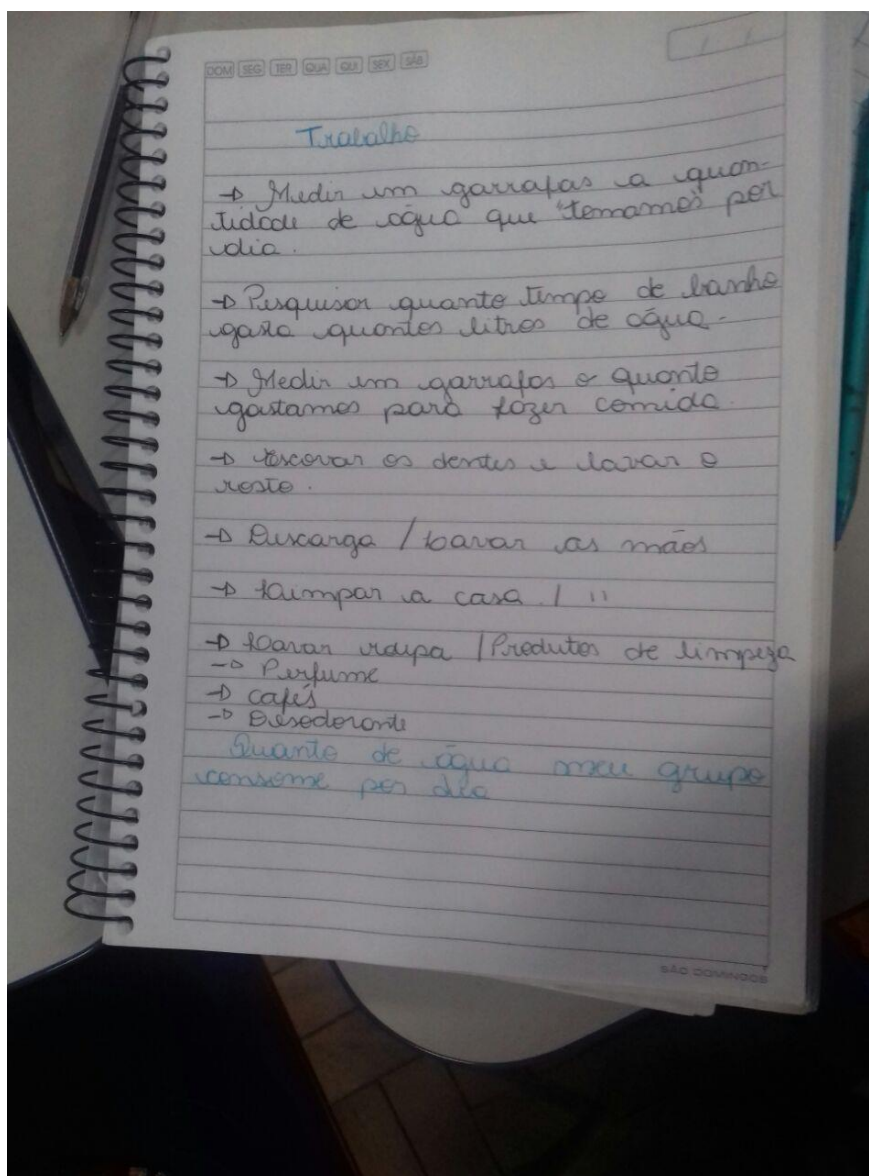 DOM SEG TER QUA QUI SEX SÁB
Trabalho
→ Medir um garrafas a quan-
tidade de água que tomamos por
dia.
→ Pesquisar quanto tempo de banho
gasta quantos litros de água.
→ Medir um garrafas o quanto
gastamos para fazer comida.
→ Escovar os dentes e lavar o
resto.
→ Descarga / Lavar as mãos
→ Limpar a casa / "
→ Lavar roupa / Produtos de limpeza
→ Perfume
→ Cafés
→ Desodorante
Quanto de água meu grupo
consome por dia
SÃO DOMINGOS